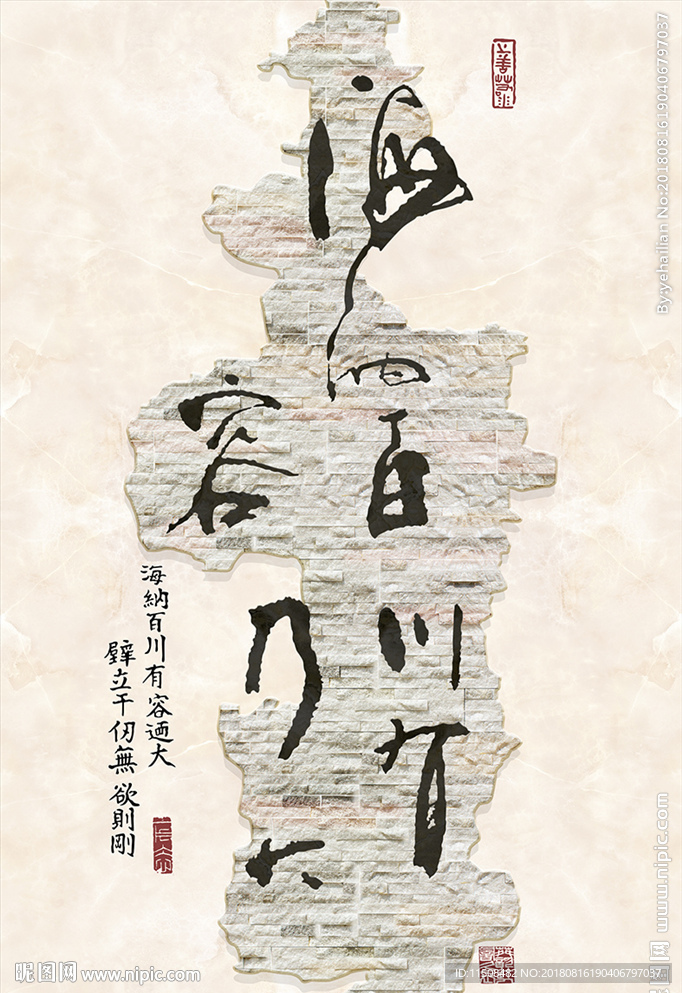 上善若水
海纳百川有
容乃大
海納百川有容迺大
壁立千仞無欲則剛
昵图网 www.nipic.com
ID:11698482 NO:20180816190406797037
By:yehailian No:20180816190406797037
www.nipic.com